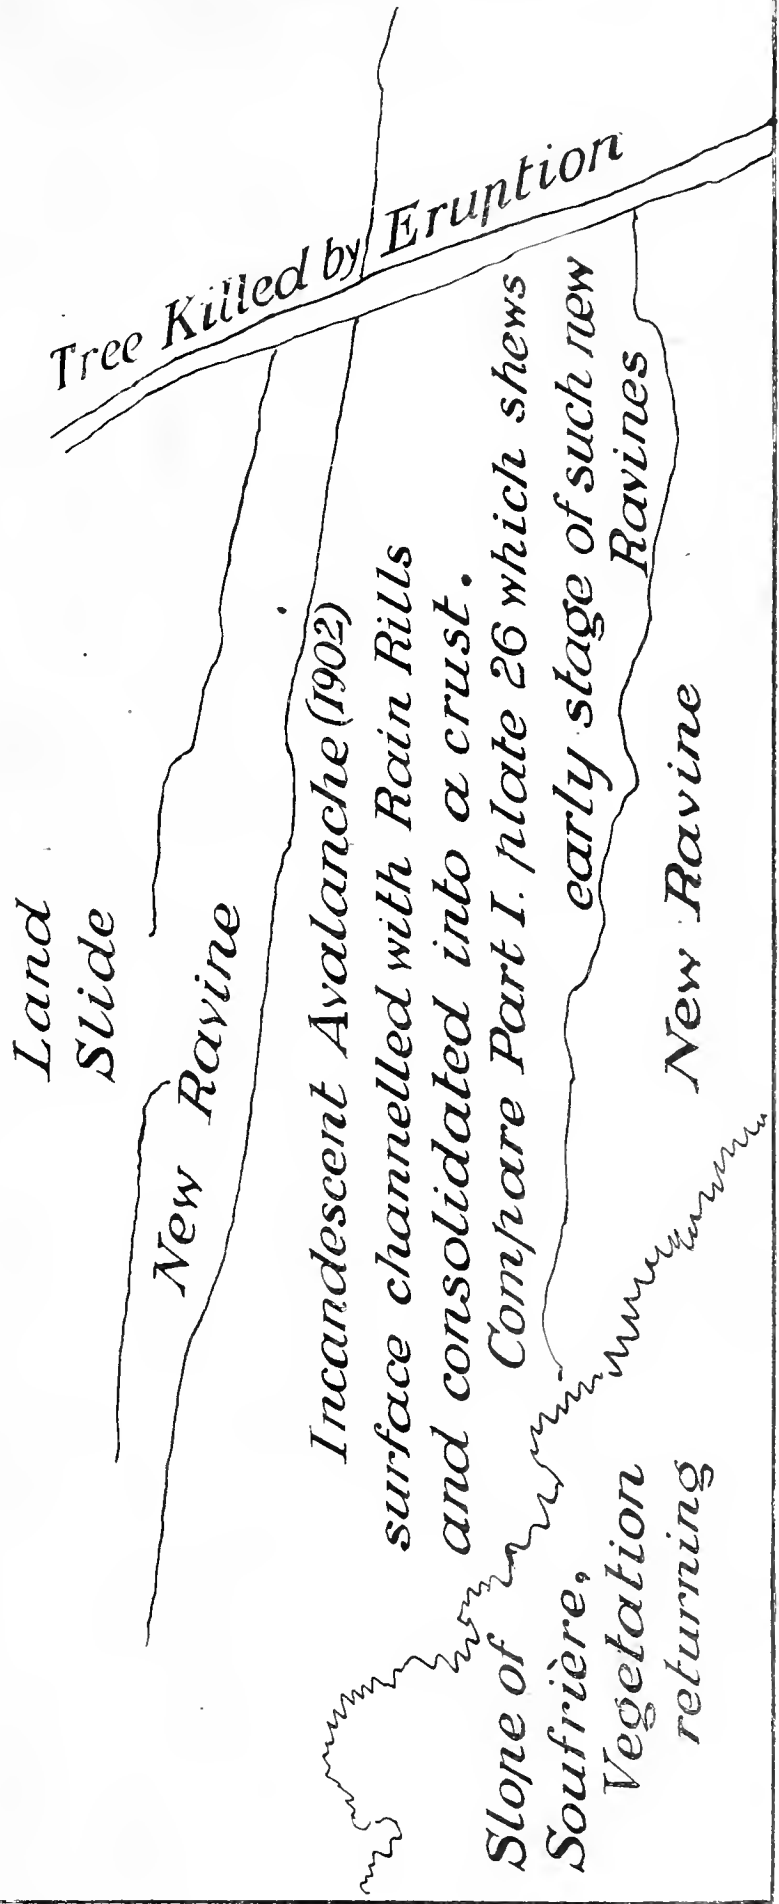 Land
Slide
Tree Killed by Eruption
New Ravine
Incandescent Avalanche (1902)
surface channelled with Rain Rills
and consolidated into a crust.
Compare Part I. plate 26 which shews
early stage of such new
Ravines
Slope of
Soufrière,
Vegetation
returning
New Ravine